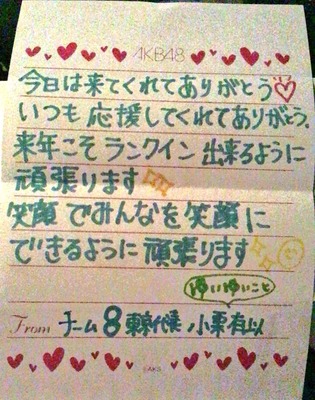 AKB48
今日は来てくれてありがとう♡
いつも応援してくれてありがとう。
来年こそランクイン出来るように
頑張ります
笑顔でみんなを笑顔に
できるように頑張ります
ゆいゆいこと
From チーム8 東京代表 小栗有以
©AKS